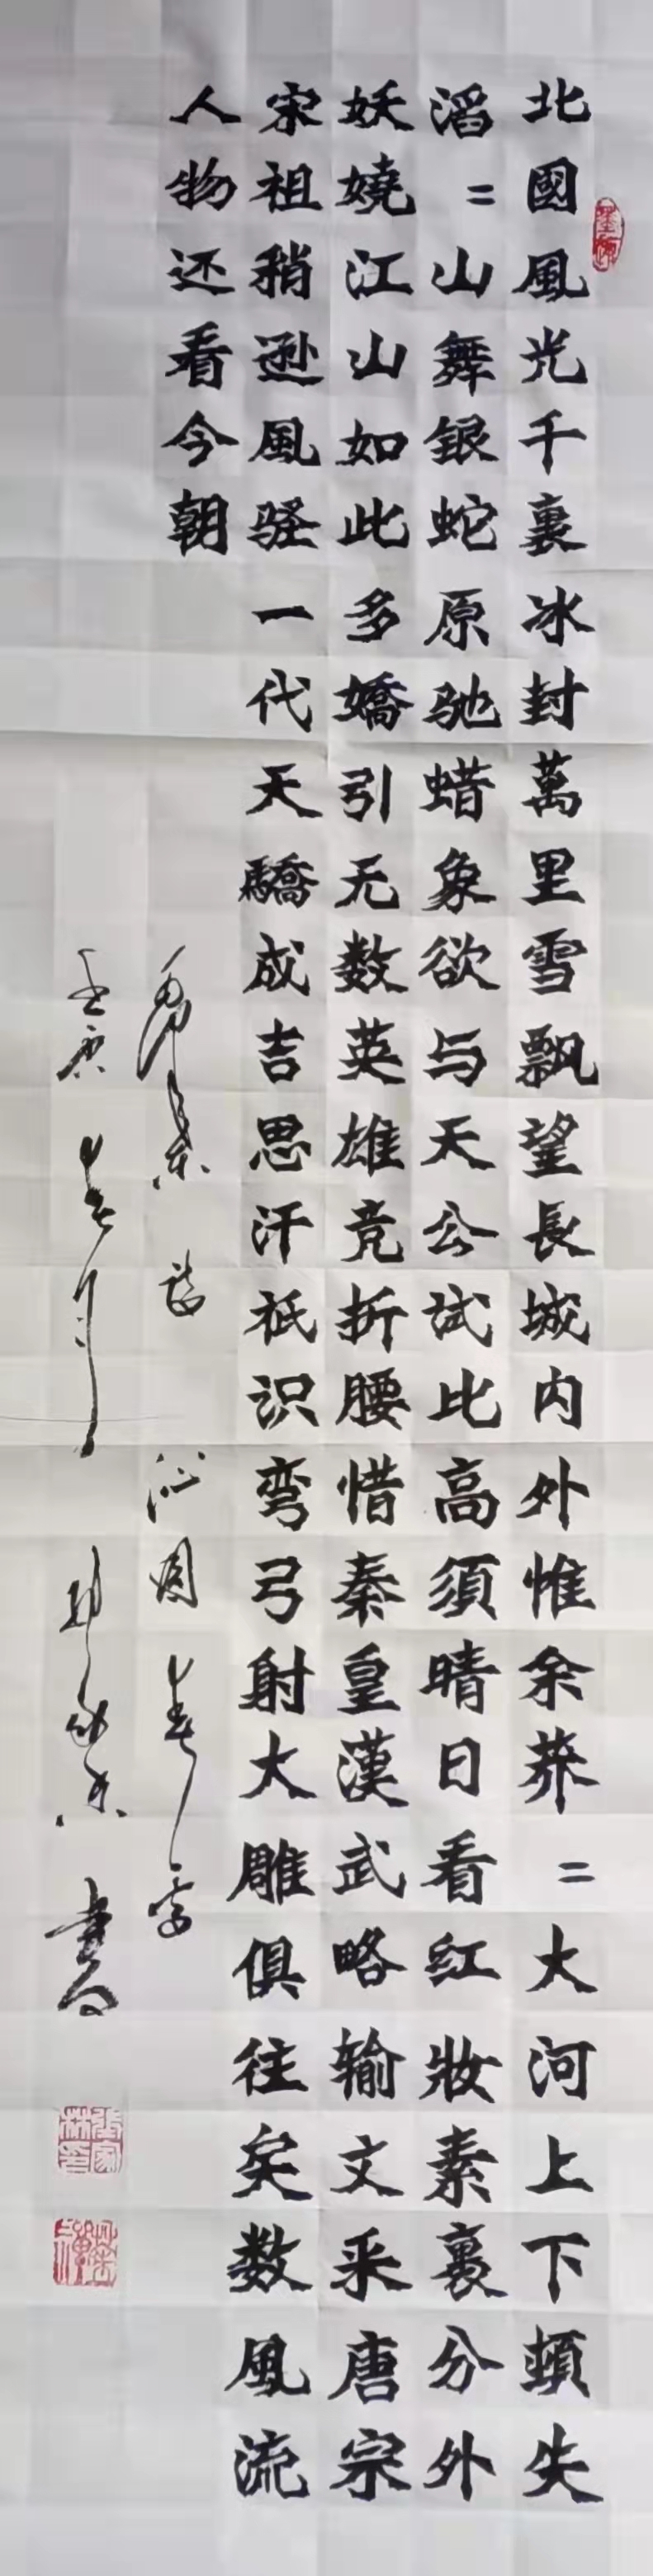 北國風光千裏冰封萬里雪飘望長城内外惟余莽=大河上下頓失
滔=山舞银蛇原驰蜡象欲与天公试比高須晴日看红妝素裹分外
妖嬈江山如此多嬌引无数英雄竞折腰惜秦皇漢武略输文采唐宗
宋祖稍逊風骚一代天驕成吉思汗祇识弯弓射大雕俱往矣数風流
人物还看今朝
毛泽东 词 沁园春 雪
春月 书